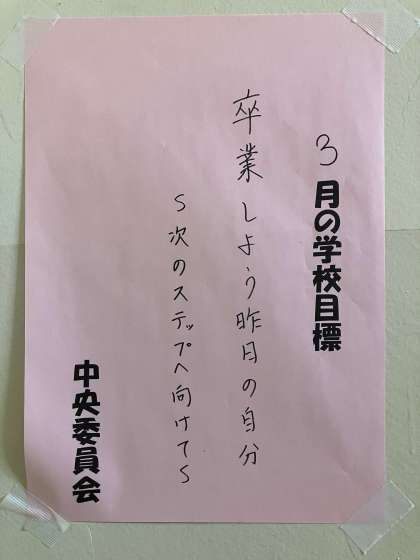 3月の学校目標
卒業しよう昨日の自分
~次のステップへ向けて~
中央委員会